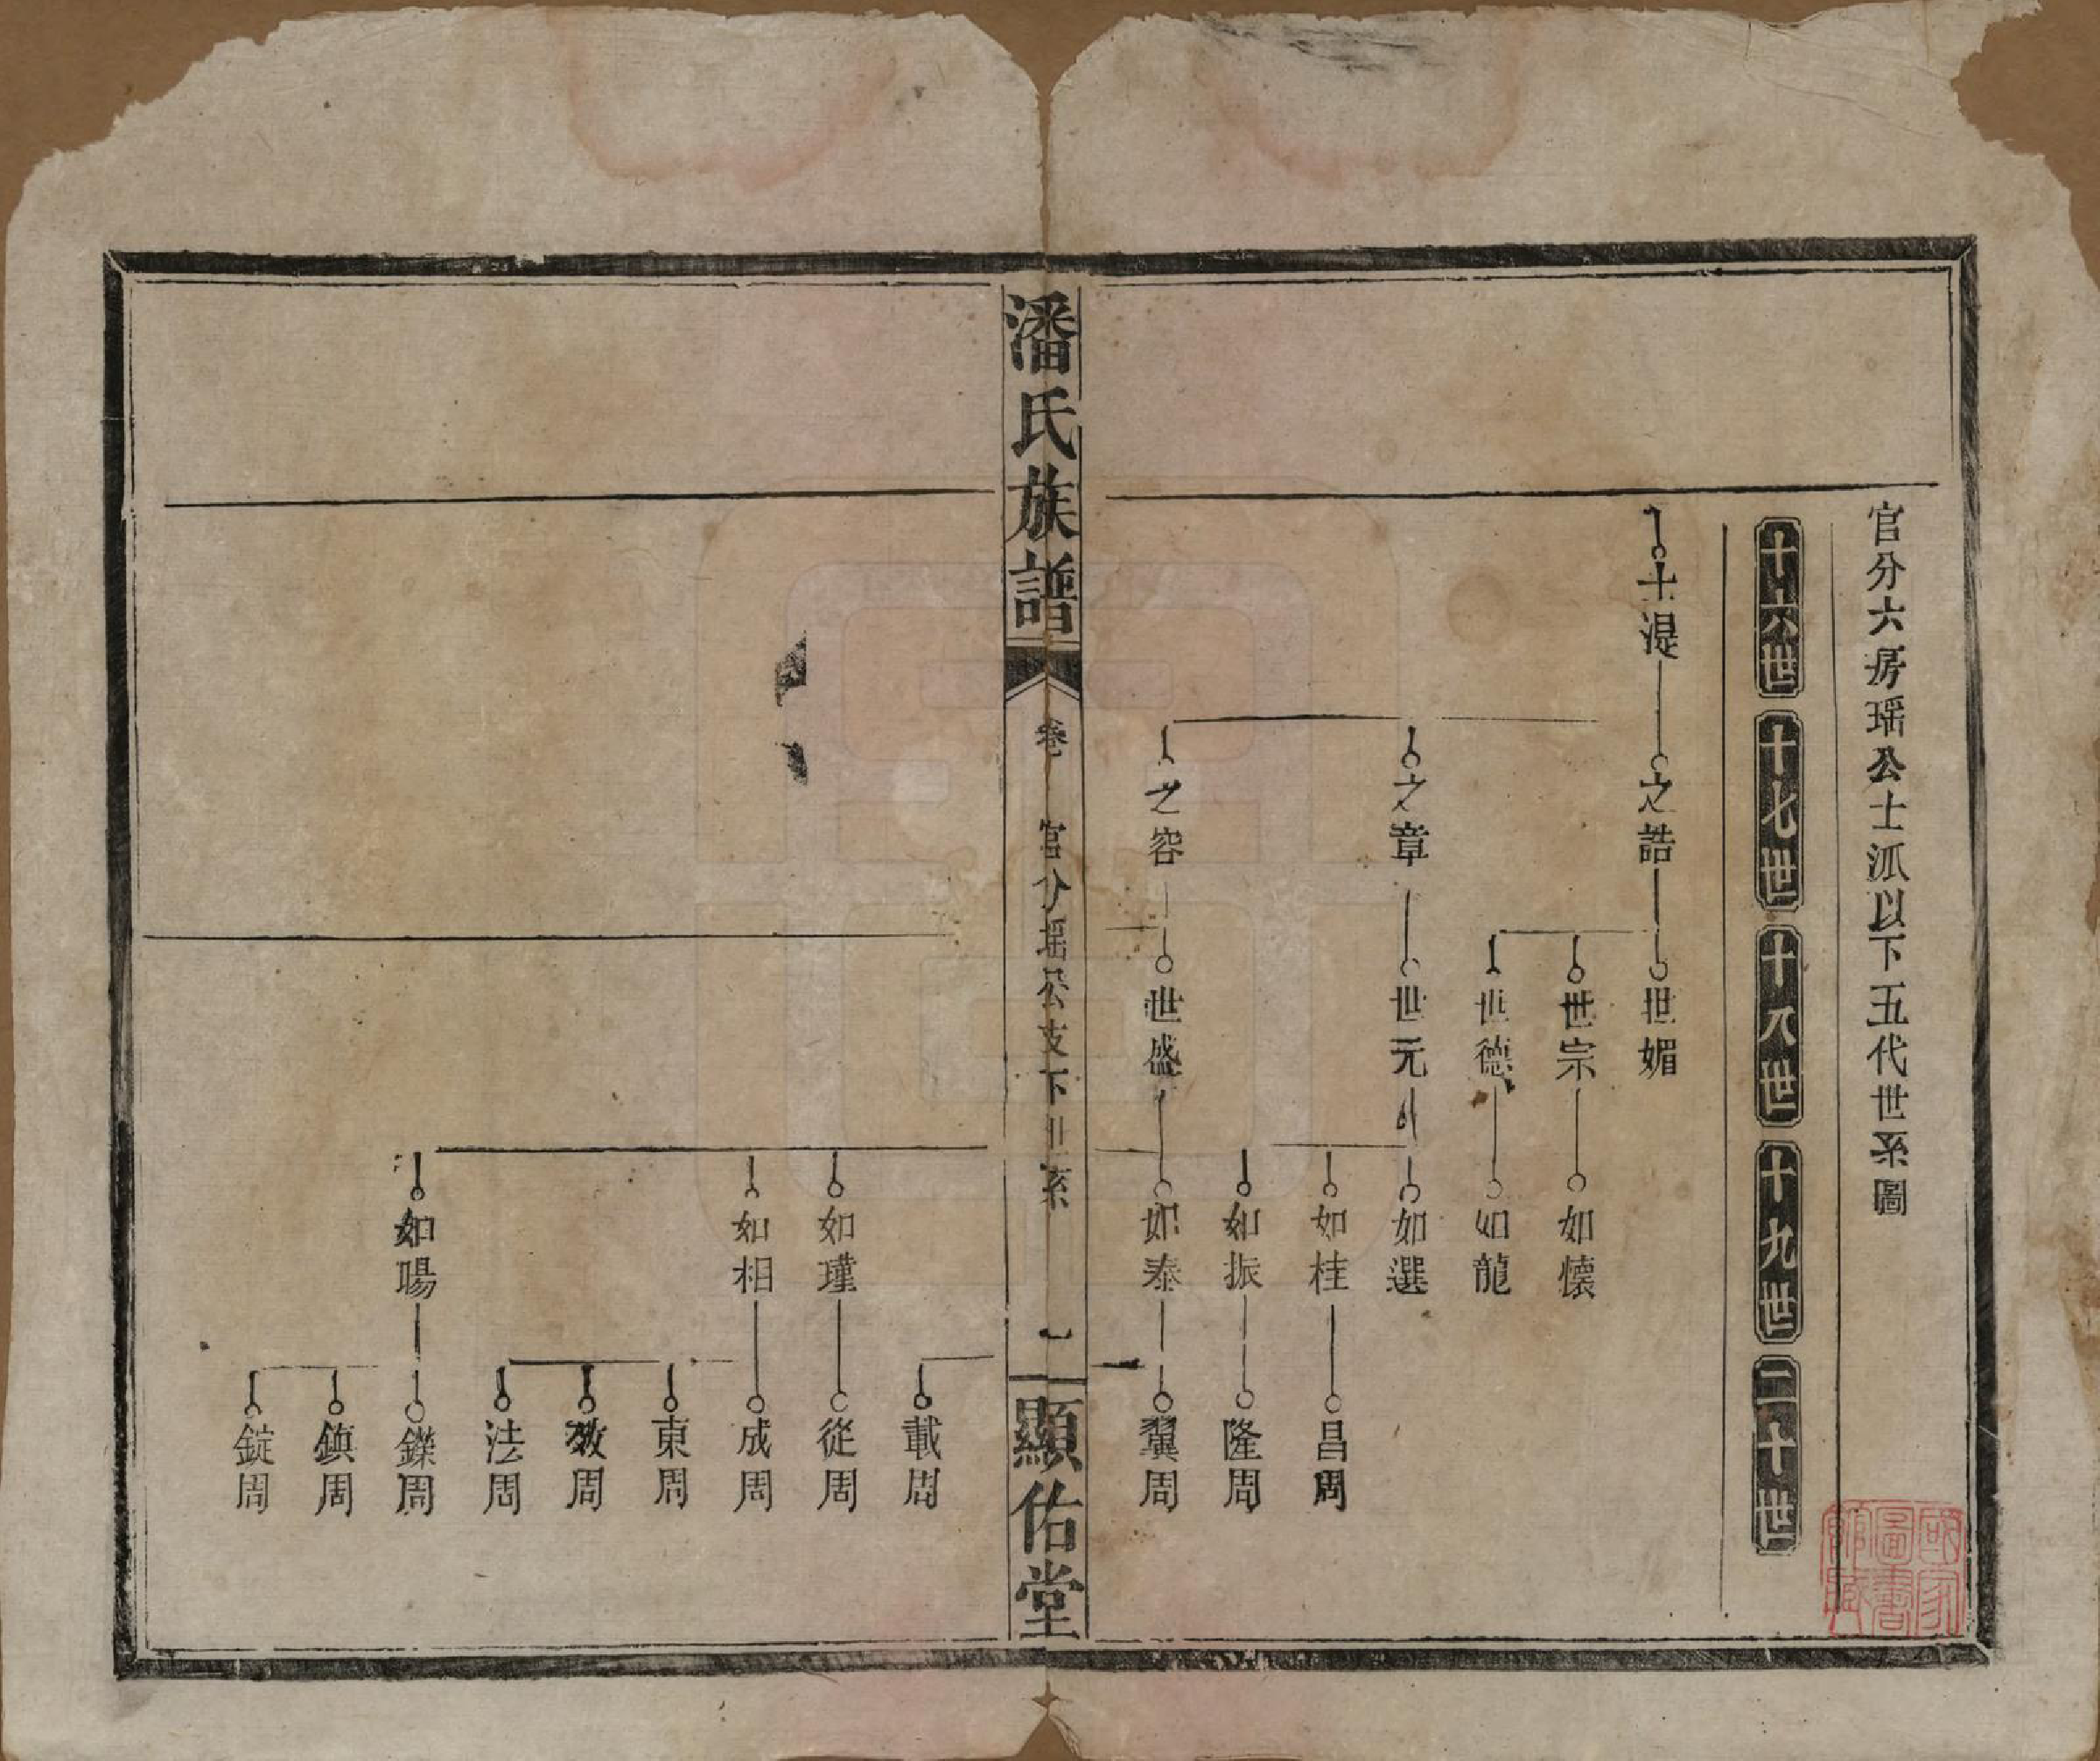 官分六房瑶公士派以下五代世系圖
十六世
十七世
十八世
十九世
二十世
士湜
之誥
世媚
世宗
如懷
世德
如龍
之章
世元
如選
如桂
昌周
如振
隆周
之容
世盛
如泰
翼周
潘氏族譜
卷
官分瑶公支下世系
一
顯佑堂
載周
如瑾
從周
如相
成周
東周
敦周
法周
如暘
鑅周
鎮周
錠周
國家圖書館藏